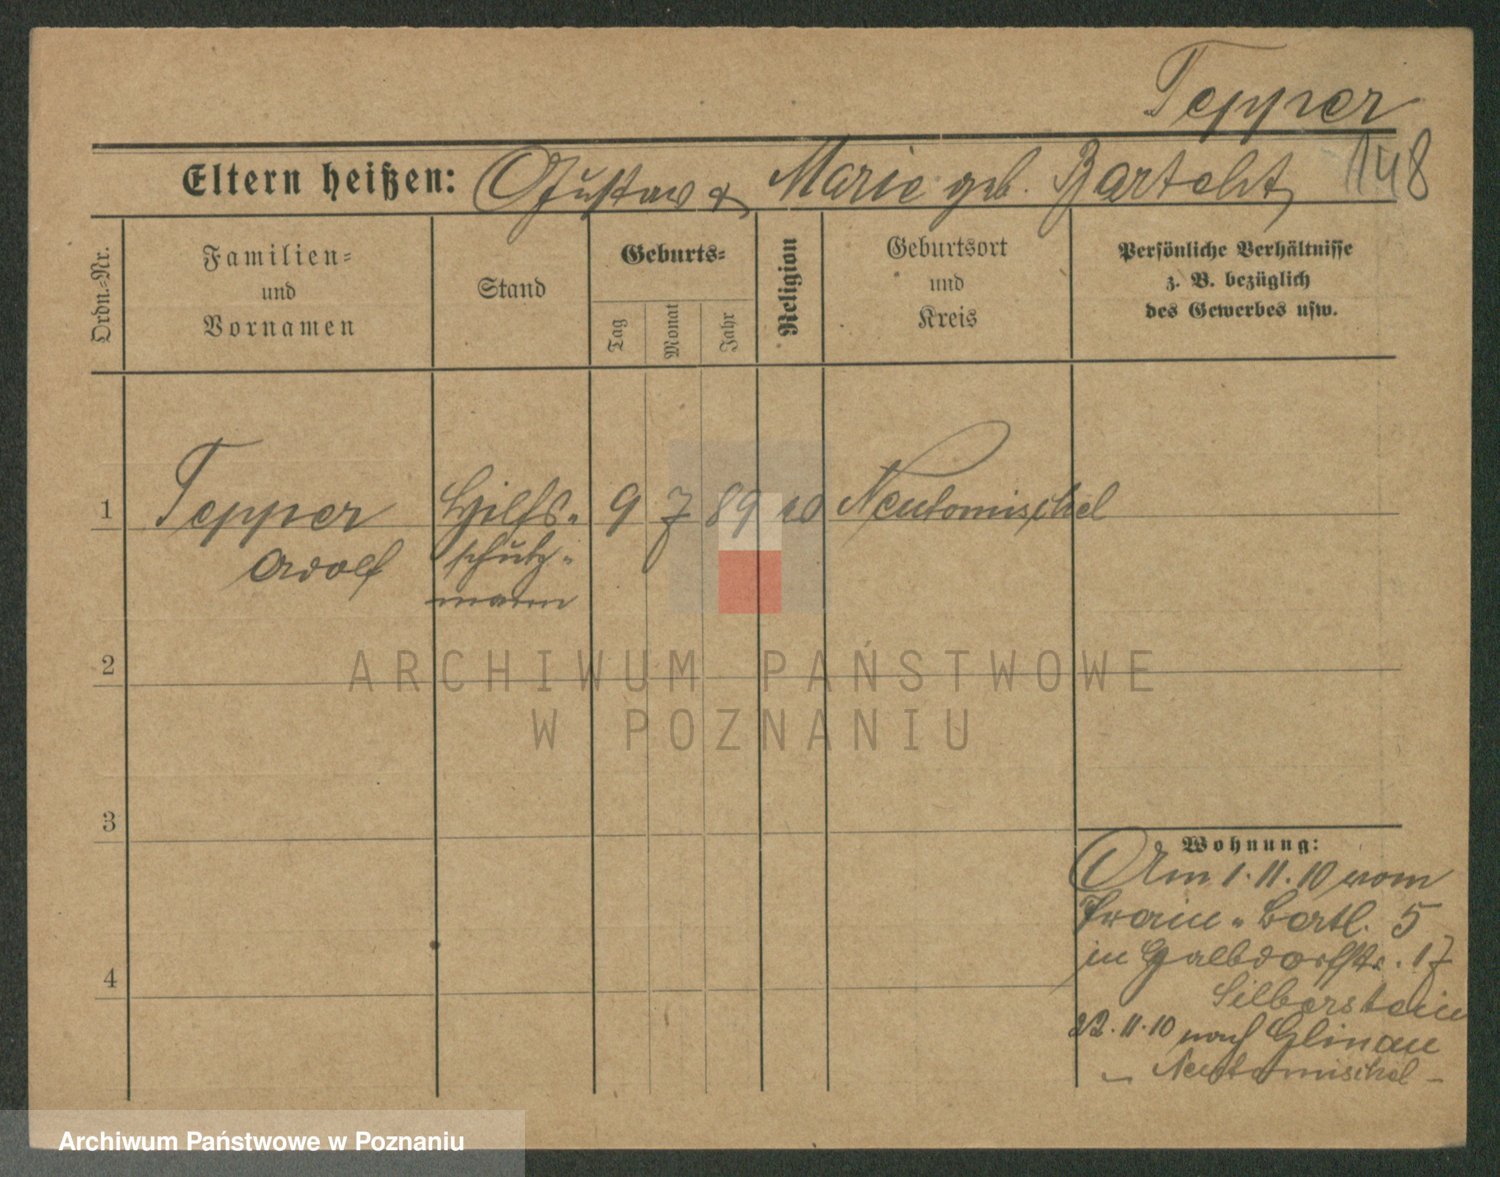 Tepper
148
Eltern heißen: Gustav & Marie geb. Bartelt
Ordn.-Nr.
Familien-
und
Vornamen
Stand
Geburts-
Tag
Monat
Jahr
Religion
Geburtsort
und
Kreis
Persönliche Verhältnisse
z. B. bezüglich
des Gewerbes usw.
1 Tepper Hilfs- 9 7 89 Neutomischel
Adolf schutz-
mann
2
ARCHIWUM PAŃSTWOWE
W POZNANIU
3
Wohnung:
Am 1.11.10 vom
Train-Batl. 5
in Halbdorfstr. 17
Silberstein
22.11.10 nach Glinau
- Neutomischel -
4
Archiwum Państwowe w Poznaniu